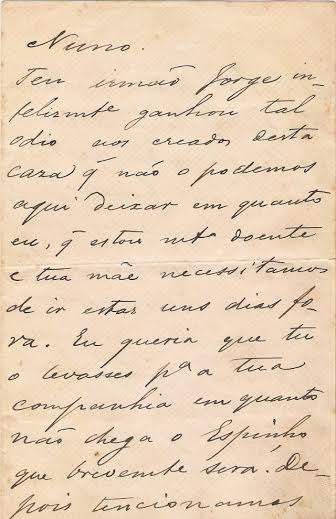 Nuno.
Teu irmão Jorge in-
felizmte ganhou tal
odio aos creados desta
caza q̃ não o podemos
aqui deixar em quanto
eu, q̃ estou mtº doente
e tua mãe necessitamos
de ir estar uns dias fo-
ra. Eu queria que tu
o levasses pª a tua
companhia em quanto
não chega o Espinho
que brevemte será. De-
pois tencionamos